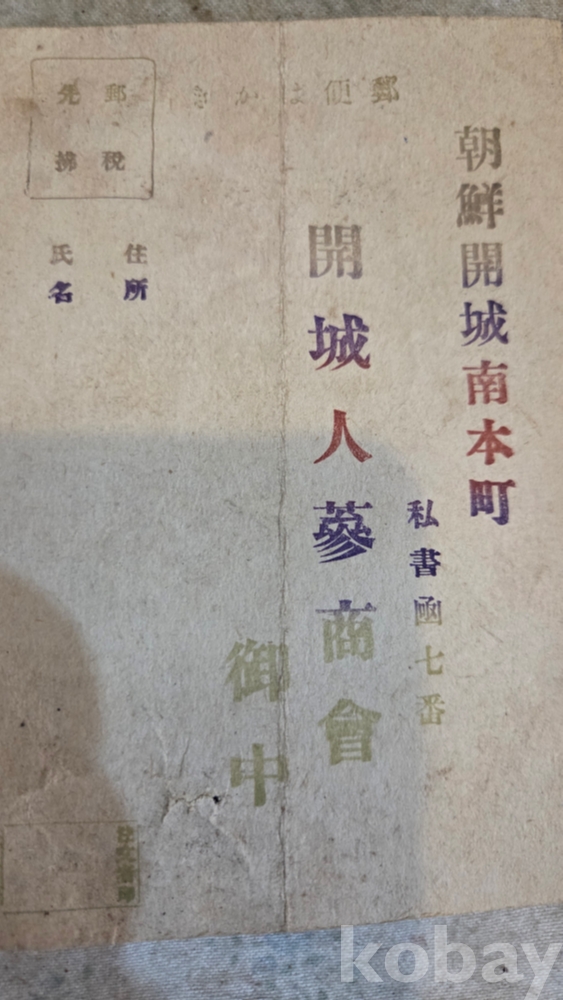 郵便はかき
郵税
先拂
朝鮮開城南本町
私書函七番
開城人蔘商會
御中
住所
氏名
kobay